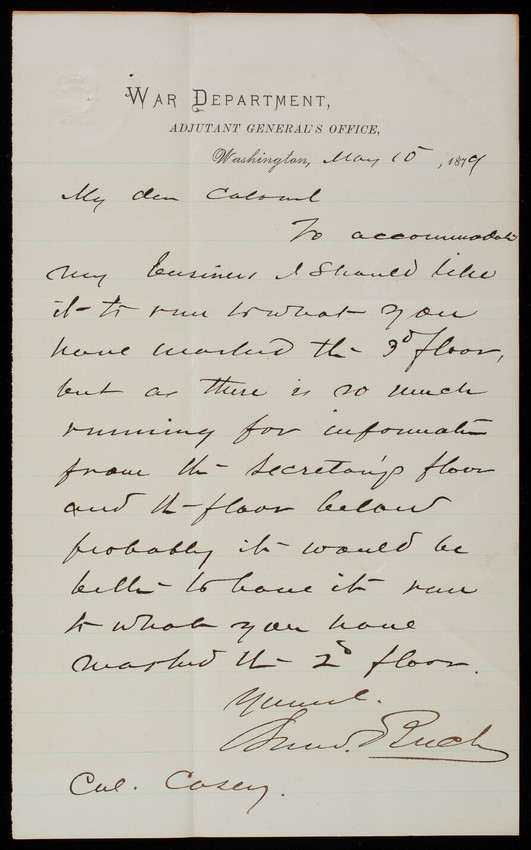 War Department,
Adjutant General's Office,
Washington, May 10, 1879
My dear Colonel
To accommodate
my business I should like
it to run to what you
have marked the 3d floor,
but as there is so much
running for information
from the Secretary's floor
and the floor below
probably it would be
better to have it run
to what you have
marked the 2d floor.
Yours &c.
Col. Casey.